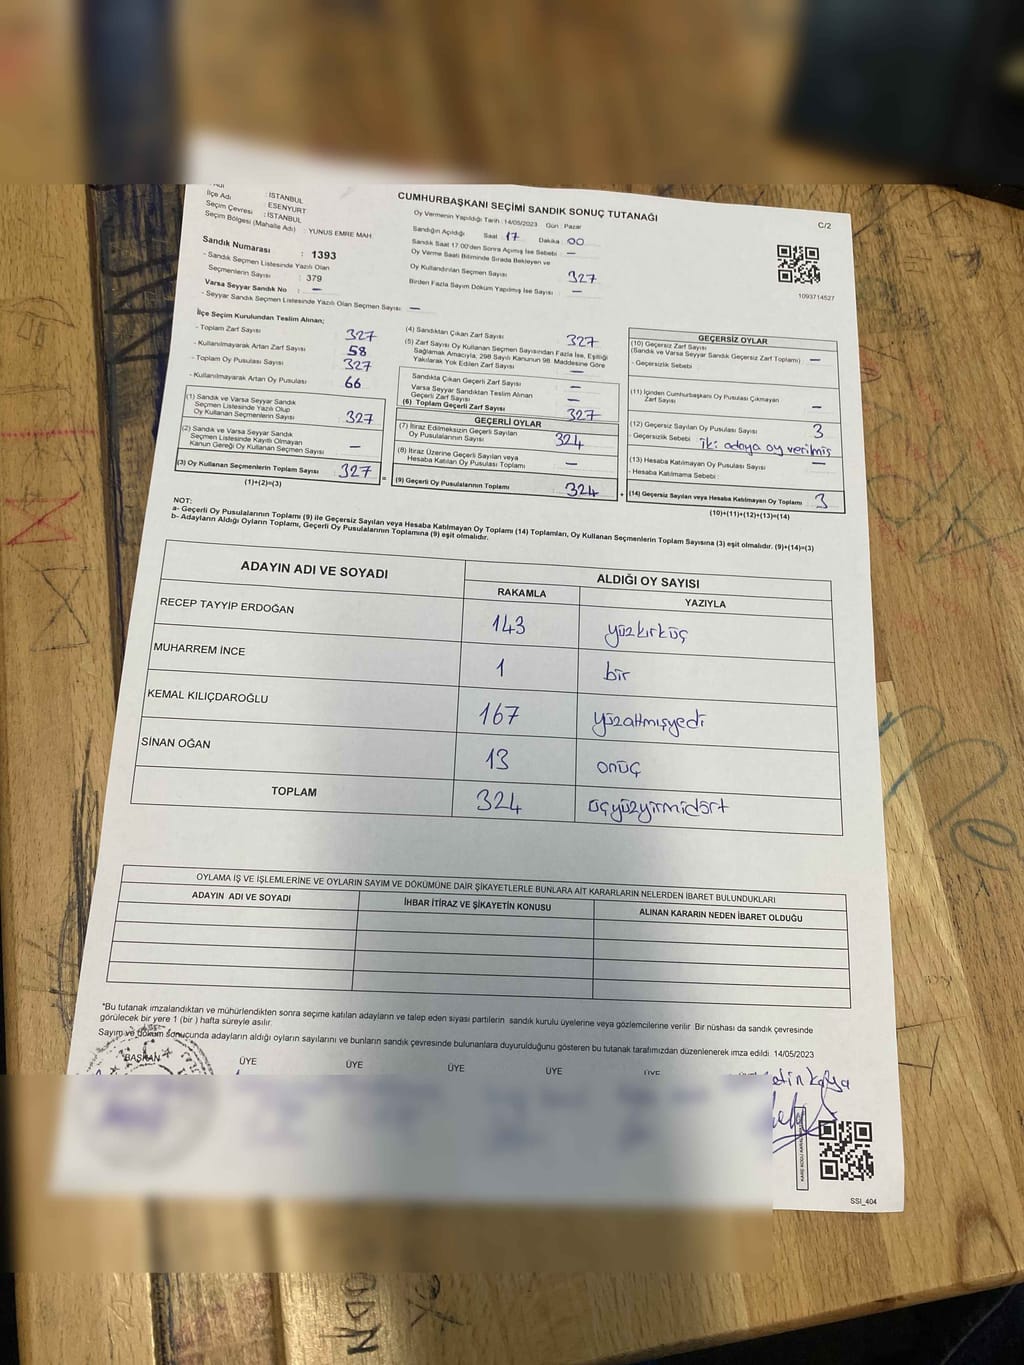 İlçe Adı : İSTANBUL
Seçim Çevresi : ESENYURT
: İSTANBUL
Seçim Bölgesi (Mahalle Adı) : YUNUS EMRE MAH.
Sandık Numarası : 1393
- Sandık Seçmen Listesinde Yazılı Olan
Seçmenlerin Sayısı : 379
Varsa Seyyar Sandık No : —
- Seyyar Sandık Seçmen Listesinde Yazılı Olan Seçmen Sayısı : —
CUMHURBAŞKANI SEÇİMİ SANDIK SONUÇ TUTANAĞI
C/2
Oy Vermenin Yapıldığı Tarih : 14/05/2023 Gün : Pazar
Sandığın Açıldığı Saat : 17 Dakika : 00
Sandık Saat 17.00'den Sonra Açılmış İse Sebebi : —
Oy Verme Saati Bitiminde Sırada Bekleyen ve
Oy Kullandırılan Seçmen Sayısı 327
Birden Fazla Sayım Döküm Yapılmış İse Sayısı : —
1093714527
İlçe Seçim Kurulundan Teslim Alınan;
- Toplam Zarf Sayısı 327
- Kullanılmayarak Artan Zarf Sayısı 58
- Toplam Oy Pusulası Sayısı 327
- Kullanılmayarak Artan Oy Pusulası 66
(1) Sandık ve Varsa Seyyar Sandık
Seçmen Listesinde Yazılı Olup
Oy Kullanan Seçmenlerin Sayısı 327
(2) Sandık ve Varsa Seyyar Sandık
Seçmen Listesinde Kayıtlı Olmayan
Kanun Gereği Oy Kullanan Seçmen Sayısı —
(3) Oy Kullanan Seçmenlerin Toplam Sayısı 327
(1)+(2)=(3)
(4) Sandıktan Çıkan Zarf Sayısı 327
(5) Zarf Sayısı Oy Kullanan Seçmen Sayısından Fazla İse, Eşitliği
Sağlamak Amacıyla; 298 Sayılı Kanunun 98. Maddesine Göre
Yakılarak Yok Edilen Zarf Sayısı —
Sandıkta Çıkan Geçerli Zarf Sayısı —
Varsa Seyyar Sandıktan Teslim Alınan
Geçerli Zarf Sayısı —
(6) Toplam Geçerli Zarf Sayısı 327
=
GEÇERLİ OYLAR
(7) İtiraz Edilmeksizin Geçerli Sayılan
Oy Pusulalarının Sayısı 324
(8) İtiraz Üzerine Geçerli Sayılan veya
Hesaba Katılan Oy Pusulası Toplamı —
(9) Geçerli Oy Pusulalarının Toplamı 324
+
GEÇERSİZ OYLAR
(10) Geçersiz Zarf Sayısı
(Sandık ve Varsa Seyyar Sandık Geçersiz Zarf Toplamı) —
- Geçersizlik Sebebi
(11) İçinden Cumhurbaşkanı Oy Pusulası Çıkmayan
Zarf Sayısı —
(12) Geçersiz Sayılan Oy Pusulası Sayısı 3
- Geçersizlik Sebebi iki adaya oy verilmiş
(13) Hesaba Katılmayan Oy Pusulası Sayısı —
- Hesaba Katılmama Sebebi :
(14) Geçersiz Sayılan veya Hesaba Katılmayan Oy Toplamı 3
(10)+(11)+(12)+(13)=(14)
NOT:
a- Geçerli Oy Pusulalarının Toplamı (9) ile Geçersiz Sayılan veya Hesaba Katılmayan Oy Toplamı (14) Toplamları, Oy Kullanan Seçmenlerin Toplam Sayısına (3) eşit olmalıdır. (9)+(14)=(3)
b- Adayların Aldığı Oyların Toplamı, Geçerli Oy Pusulalarının Toplamına (9) eşit olmalıdır.
ADAYIN ADI VE SOYADI ALDIĞI OY SAYISI
RAKAMLA YAZIYLA
RECEP TAYYİP ERDOĞAN 143 yüzkırküç
MUHARREM İNCE 1 bir
KEMAL KILIÇDAROĞLU 167 yüzaltmışyedi
SİNAN OĞAN 13 onüç
TOPLAM 324 üçyüzyirmidört
OYLAMA İŞ VE İŞLEMLERİNE VE OYLARIN SAYIM VE DÖKÜMÜNE DAİR ŞİKAYETLERLE BUNLARA AİT KARARLARIN NELERDEN İBARET BULUNDUKLARI
ADAYIN ADI VE SOYADI İHBAR İTİRAZ VE ŞİKAYETİN KONUSU ALINAN KARARIN NEDEN İBARET OLDUĞU
*Bu tutanak imzalandıktan ve mühürlendikten sonra seçime katılan adayların ve talep eden siyasi partilerin sandık kurulu üyelerine veya gözlemcilerine verilir. Bir nüshası da sandık çevresinde
görülecek bir yere 1 (bir) hafta süreyle asılır.
Sayım ve döküm sonuçunda adayların aldığı oyların sayılarını ve bunların sandık çevresinde bulunanlara duyurulduğunu gösteren bu tutanak tarafımızdan düzenlenerek imza edildi. 14/05/2023
BAŞKAN ÜYE ÜYE ÜYE ÜYE ÜYE
SSİ_404